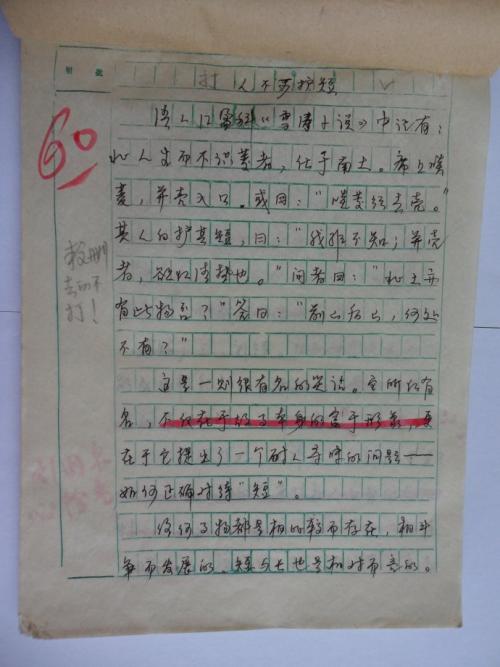 眉批
打人不要护短
60
清人江盈科《雪涛小说》中记有：
北人生而不识菱者，仕于南土。席上啖
菱，并壳入口。或曰："啖菱须去壳。"
其人自护其短，曰："我非不知；并壳
者，欲以清热也。"问者曰："北土亦
有此物否？"答曰："前山后山，何处
不有？"
去的不
打！
这是一则很有名的笑话。它所以有
名，不仅在于故事本身的富于形象，更
在于它提出了一个耐人寻味的问题——
如何正确对待"短"。
任何事物都是相比较而存在，相斗
争而发展的。短与长也是相对而言的。